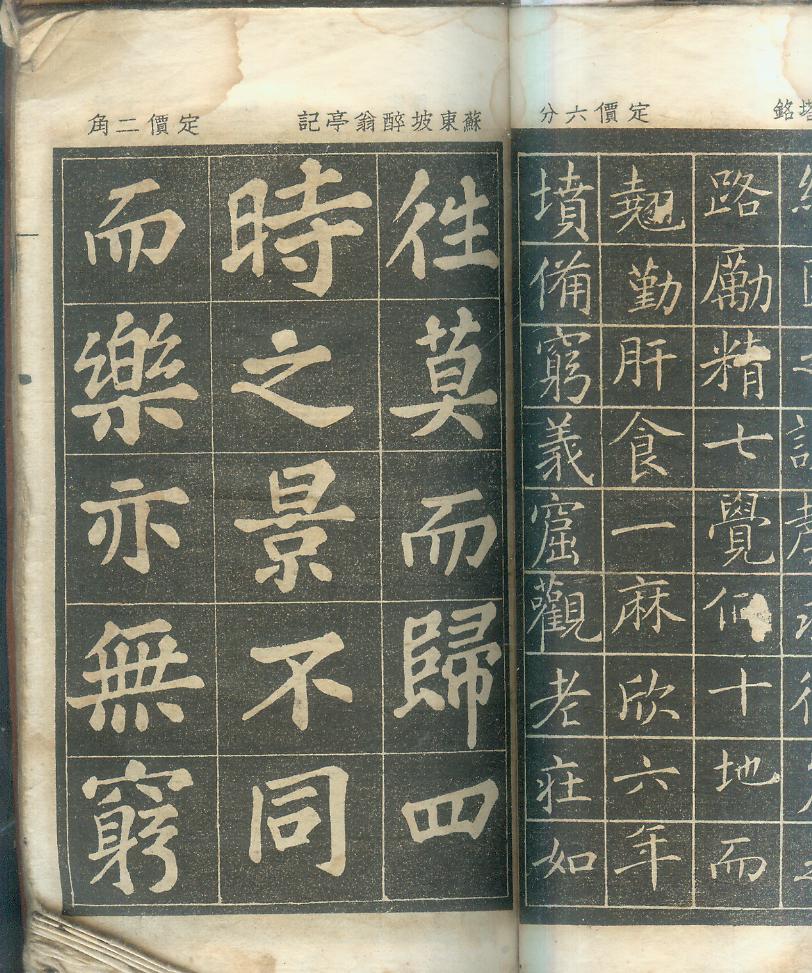 塔銘
定價六分
路勵精七覺仰十地而
翹勤肝食一麻欣六年
墳備窮義窟觀老莊如
蘇東坡醉翁亭記
定價二角
往莫而歸四
時之景不同
而樂亦無窮